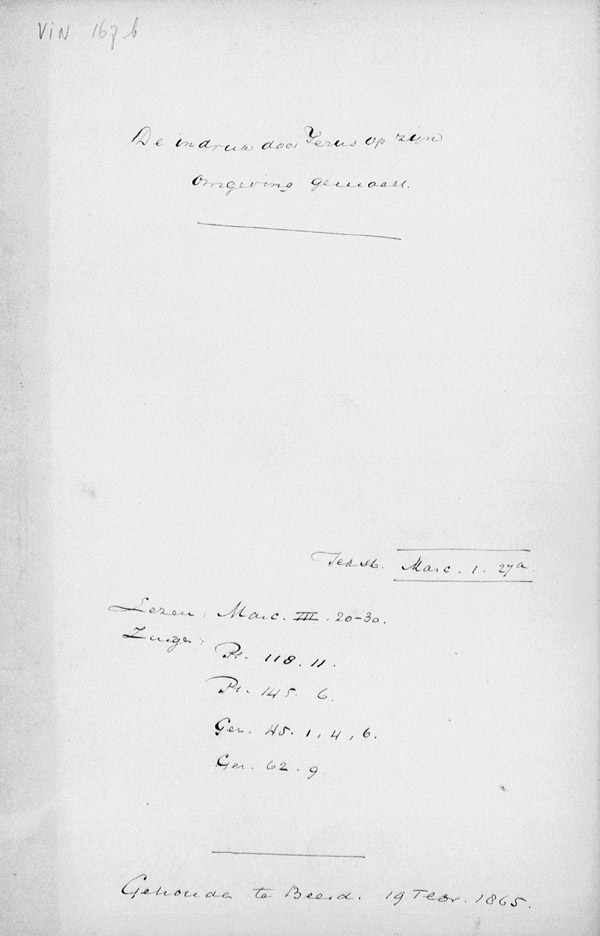 ViN 167 b
De indruk door Jezus op zijn
omgeving gemaakt.
Tekst. Marc. 1. 27a.
Lezen: Marc. III. 20-30.
Zingen:
Ps. 118. 11.
Ps. 145. 6.
Gez. 45. 1, 4, 6.
Gez. 62. 9.
Gehouden te Beesd. 19 Febr. 1865.